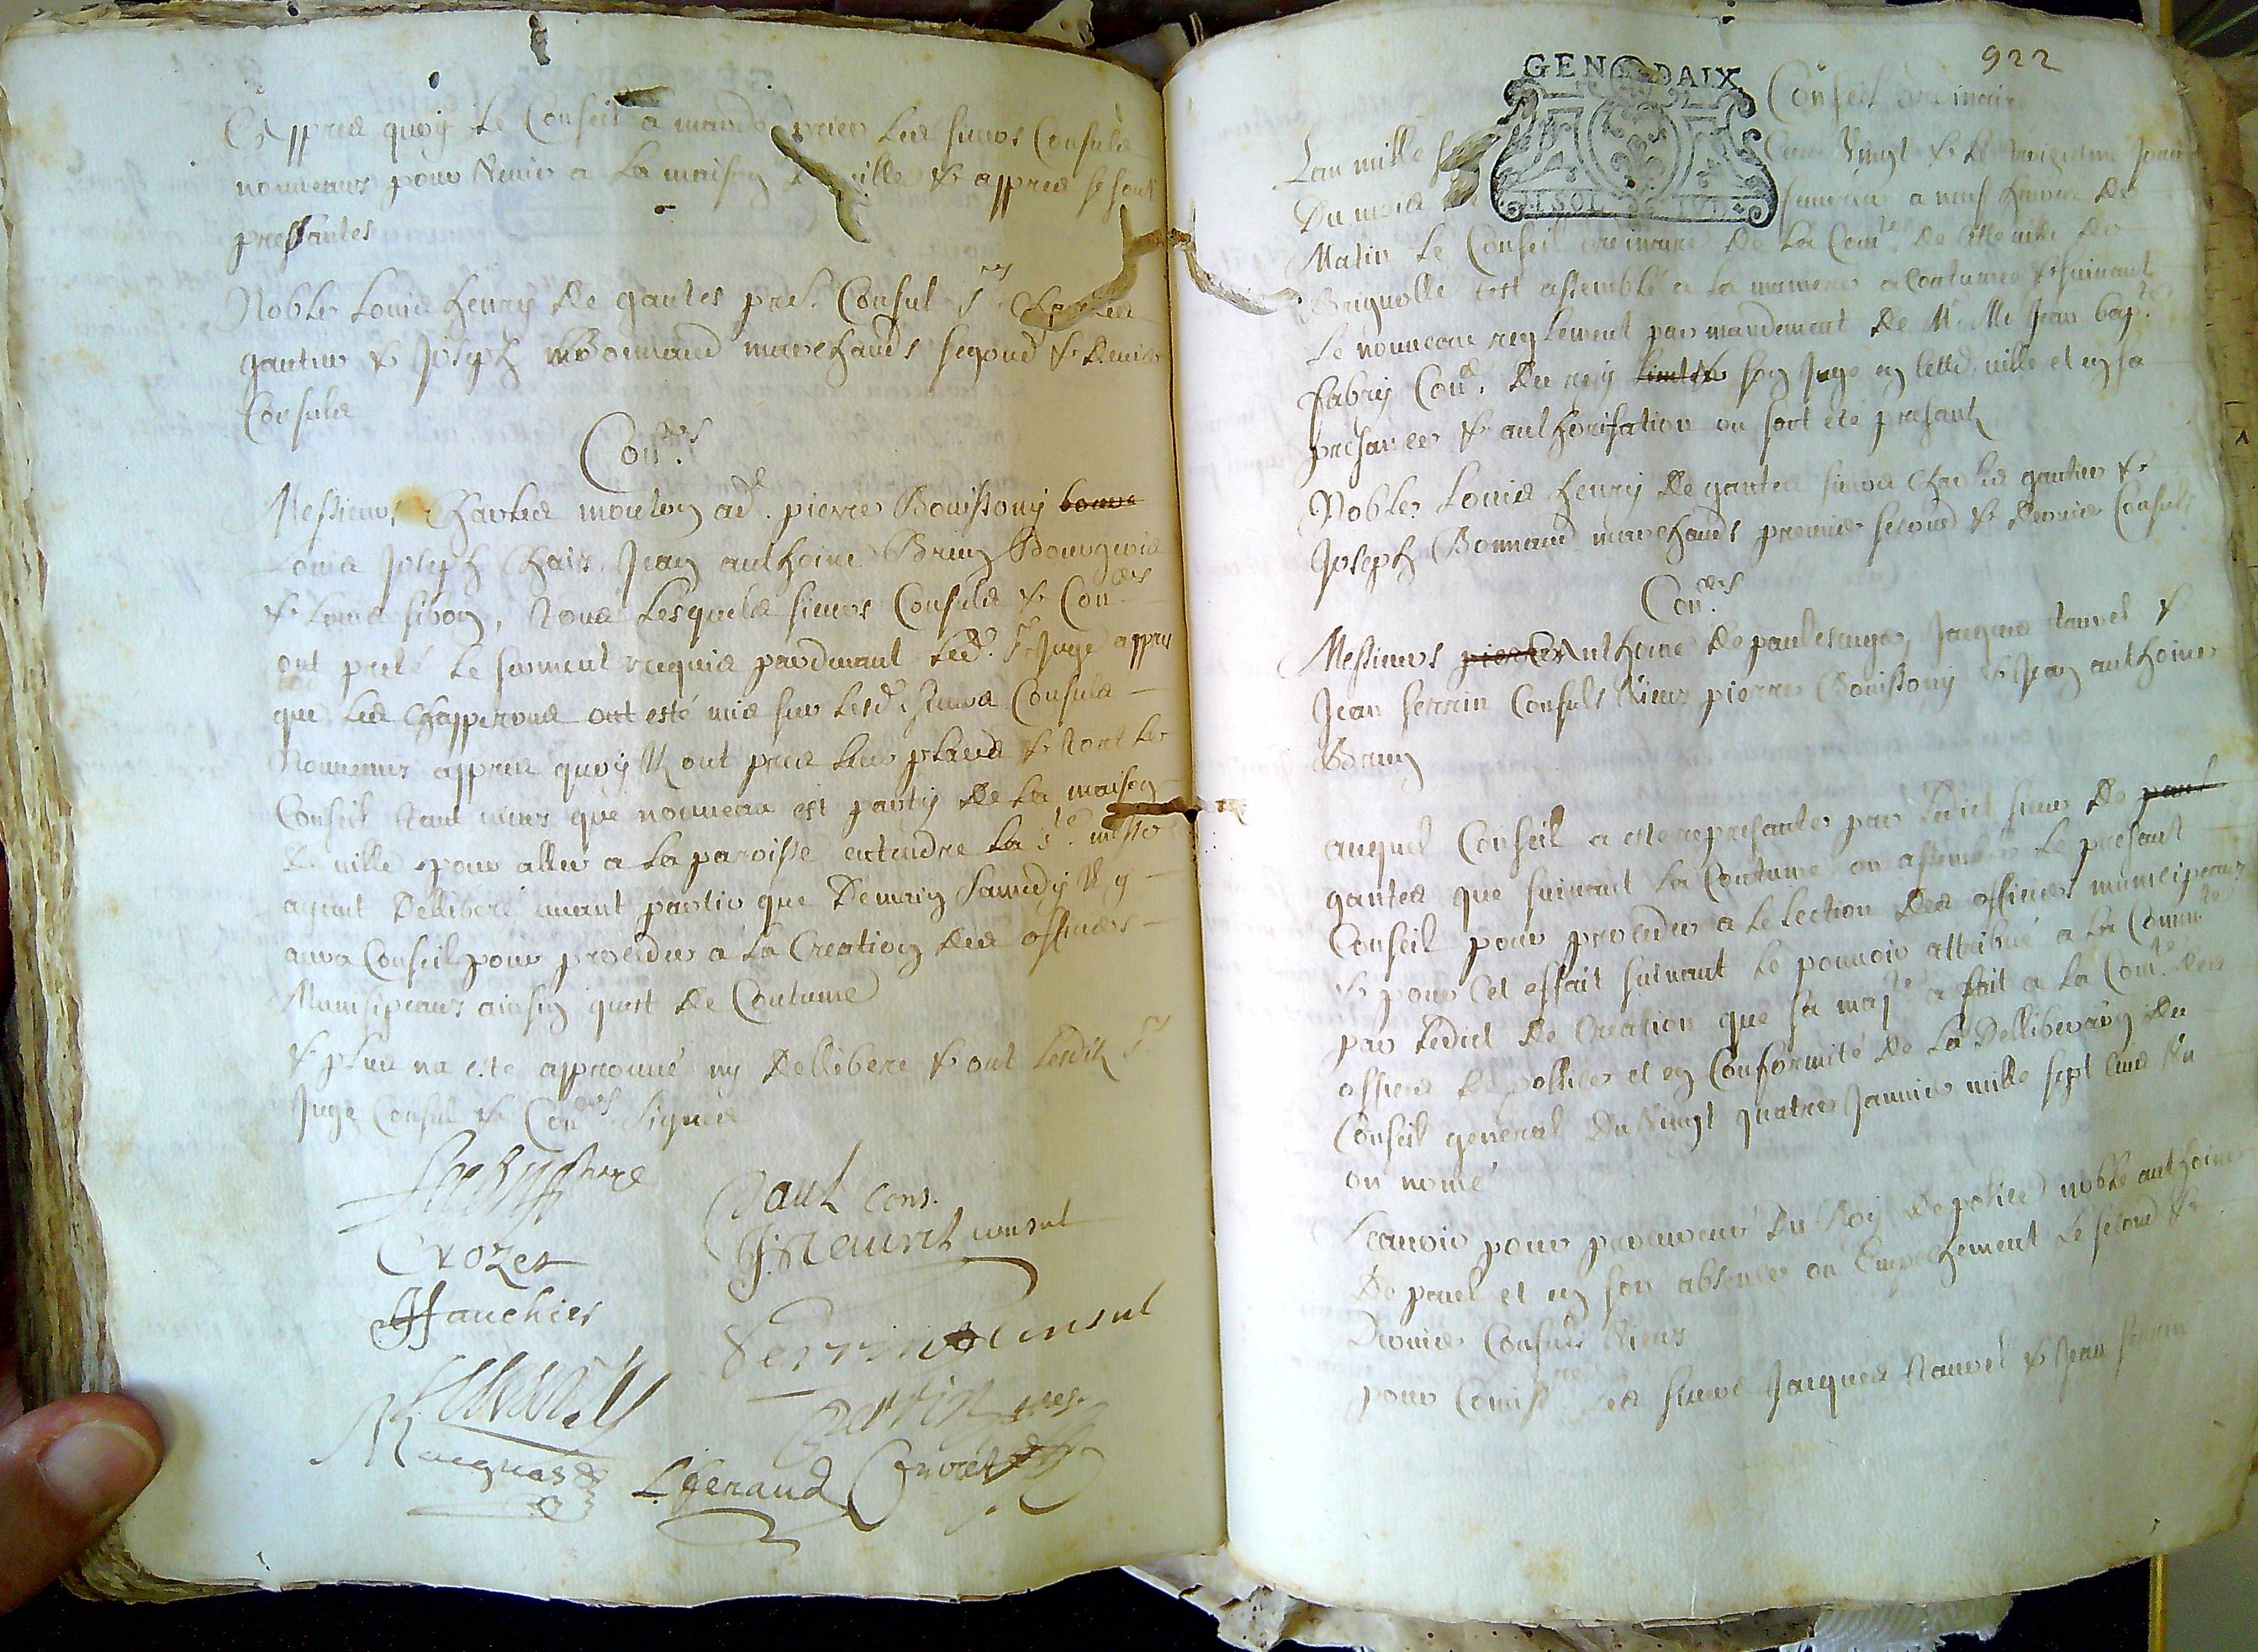 Et appres quoy le Conseil a mandé prier les sieurs Consuls
nouveaux pour venir a la maison de ville & appres se sont
presantes
Noble Louis henry de gantes pre.r Consul s.rs Charles
gantier & Joseph Bonnaud marchands segond & dernier
Consuls
Con.ers
Messieurs Charles moulon ad.t pierre Bouissony bourg
Louis Joseph Chaix, Jean anthoine Brun Bourgeois
& Louis sibon, Tous Lesquels sieurs Consuls & Con.ers
ont preté le serment requis pardevant led. s.r Juge appres
que les Chapperons ont esté mis sur lesd. sieurs Consuls
Nouveaux appres quoy ils ont pris leur places & tout le
Conseil tant vieux que nouveau est partis de la maison
de ville pour aller a la paroisse entendre la s.te messe
ayant Dellibere avant partir que Demain samedy il y
aura Conseil pour proceder a la Creation des officiers
Municipeaux ainsin quest de Coutume
& plus na este approuvé ny Dellibere & ont lesdits s.rs
Juge Consul & Con.ers Signés
Fabry Juge
Paul Cons.
Crozet
J. Tauvel consul
Jfauchier
Serrin Consul
L. Geraud
922
GEN DAIX
Conseil ordinaire
Lan mille sept Cens Vingt & le troisieme jour
Du mois a neuf heures de
Matin le Conseil ordinaire de la Com.té de cette ville de
Brignolle sest assemblé a la maniere acoutumee & suivant
le nouveau reglement par mandement de M.r M.e Jean bap.te
fabry Con.er du roy son Juge en cette ville et en sa
presance & authorisation ou sont été presants
Noble Louis henry de gantes sieurs Charles gantier &
Joseph Bonnaud marchands premier second & dernier Consuls
Con.ers
Messieurs pierre Anthoine de paul escuyer, Jacques tauvel &
Jean serrin Consuls vieux pierre Bouissony & Jean anthoine
Brun
auquel Conseil a este representer par ledict sieur de paul
gantes que suivant la Coutume on assemble le presant
Conseil pour proceder a lelection des officiers municipeaux
& pour cet effait suivant le pouvoir attribué a la Comu.té
par ledict de Creation que sa maj.té a fait a la Com.té des
offices de police et en Conformité de la Delliberaon du
Conseil general du vingt quatre Janvier mille sept cens un
on nomé
scavoir pour procureur du Roy de police noble anthoine
De paul et en son absence ou Empechement le second &
Dernier Consuls vieux
pour Comiss.res les sieurs Jacques tauvel & Jean serrin